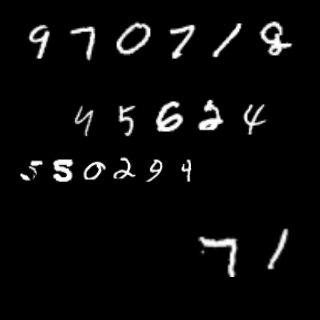 970718
45624
550294
71